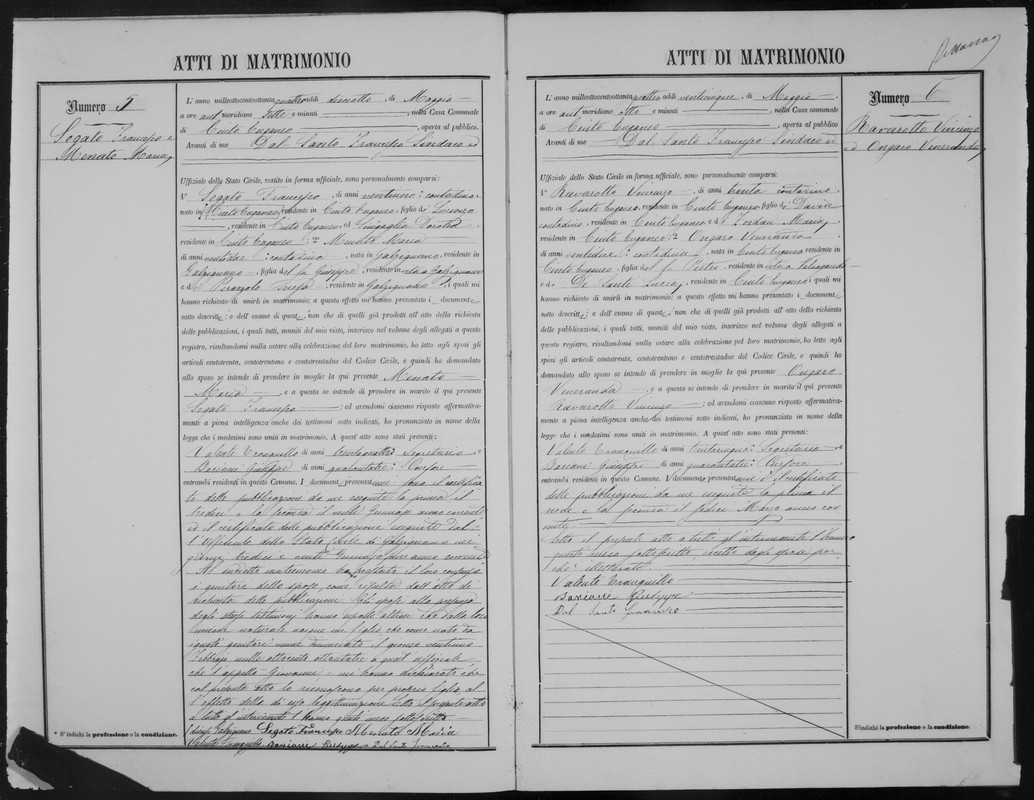 ATTI DI MATRIMONIO
Numero 5
Segato Francesco e
Menato Maria
L'anno milleottocentottantaquattro addì diciotto, di Maggio
a ore ant meridiane sette e minuti, nella Casa Comunale
di Cinto Euganeo, aperta al pubblico.
Avanti di me Dal Santo Francesco Sindaco ed
Uffiziale dello Stato Civile, vestito in forma ufficiale, sono personalmente comparsi:
1° Segato Francesco, di anni ventuno contadino
nato in Cinto Euganeo, residente in Cinto Euganeo, figlio di Lorenzo
, residente in Cinto Euganeo, ed Dorotea
residente in Cinto Euganeo; 2° Menato Maria
di anni contadina, nata in Galzignano, residente in
Galzignano, figlia del fu Giuseppe, residente in vita a Galzignano
e di, residente in Galzignano, i quali mi
hanno richiesto di unirli in matrimonio; a questo effetto mi hanno presentato i documenti
sotto descritti; e dell'esame di questi, non che di quelli già prodotti all'atto della richiesta
delle pubblicazioni, i quali tutti, muniti del mio visto, inserisco nel volume degli allegati a
questo registro, risultandomi nulla ostare alla celebrazione del loro matrimonio, ho letto agli sposi gli
articoli centotrenta, centotrentuno e centotrentadue del Codice Civile, e quindi ho domandato
allo sposo se intende di prendere in moglie la qui presente Menato
Maria, e a questa se intende di prendere in marito il qui presente
Segato Francesco; ed avendomi ciascuno risposto affermativa-
mente a piena intelligenza anche dei testimoni sotto indicati, ho pronunziato in nome della
legge che i medesimi sono uniti in matrimonio. A quest'atto sono stati presenti:
Valente Tranquillo di anni trentaquattro Segretario e
Boriani Giuseppe di anni quarantatre Cursore
entrambi residenti in questo Comune. I documenti presentati sono il certifica-
to delle pubblicazioni da me eseguite la prima il
tredici e la seconda il venti Gennaio anno corrente
ed il certificato delle pubblicazioni eseguite dal-
l'Uffiziale dello Stato Civile di Galzignano nei
giorni tredici e venti Gennaio anno corrente
Al indicato matrimonio ha prestato il loro consenso
i genitori dello sposo, come risulta dall'atto di
richiesta delle pubblicazioni. Gli sposi alla presenza
degli stessi testimoni hanno che dalla loro
unione naturale nacque un figlio che come nato da
ignoti genitori venne denunciato il giorno ventuno
Febbraio mille ottocento ottantatre a quest'ufficiale
che l'appellò Giovanni, mi hanno dichiarato che
col presente atto lo riconoscono per proprio figlio al-
l'effetto della di esso legittimazione. Letto il presente atto
a tutti gl'intervenuti l'hanno meco sottoscritto
Segato Francesco Menato Maria
Valente Tranquillo Boriani Giuseppe Dal Santo Francesco
* S'indichi la professione o la condizione.
ATTI DI MATRIMONIO
Numero 6
Ravarotto Vincenzo
ed Ongaro Veneranda
L'anno milleottocentottantaquattro addì venticinque, di Maggio
a ore ant meridiane otto e minuti, nella Casa Comunale
di Cinto Euganeo, aperta al pubblico.
Avanti di me Dal Santo Francesco Sindaco ed
Uffiziale dello Stato Civile, vestito in forma ufficiale, sono personalmente comparsi:
1° Ravarotto Vincenzo, di anni trenta contadino
nato in Cinto Euganeo, residente in Cinto Euganeo, figlio di
contadino, residente in Cinto Euganeo e di Maria
residente in Cinto Euganeo; 2° Ongaro Veneranda
di anni ventidue contadina, nata in Cinto Euganeo residente in
Cinto Euganeo, figlia del fu Pietro, residente in vita a
e di De Santi Lucia, residente in Cinto Euganeo, i quali mi
hanno richiesto di unirli in matrimonio; a questo effetto mi hanno presentato i documenti
sotto descritti; e dell'esame di questi, non che di quelli già prodotti all'atto della richiesta
delle pubblicazioni, i quali tutti, muniti del mio visto, inserisco nel volume degli allegati a
questo registro, risultandomi nulla ostare alla celebrazione del loro matrimonio, ho letto agli
sposi gli articoli centotrenta, centotrentuno e centotrentadue del Codice Civile, e quindi ho
domandato allo sposo se intende di prendere in moglie la qui presente Ongaro
Veneranda, e a questa se intende di prendere in marito il qui presente
Ravarotto Vincenzo; ed avendomi ciascuno risposto affermativa-
mente a piena intelligenza anche dei testimoni sotto indicati, ho pronunziato in nome della
legge che i medesimi sono uniti in matrimonio. A quest'atto sono stati presenti:
Valente Tranquillo di anni Segretario e
Boriani Giuseppe di anni quarantatre Cursore
entrambi residenti in questo Comune. I documenti presentati è il certificato
delle pubblicazioni da me eseguite la prima il
nove e la seconda il sedici Marzo anno cor-
rente
Letto il presente atto a tutti gl'intervenuti l'hanno
meco sottoscritto eccetto degli sposi per-
ché illetterati
Valente Tranquillo
Boriani Giuseppe
Dal Santo Francesco
S'indichi la professione o la condizione.